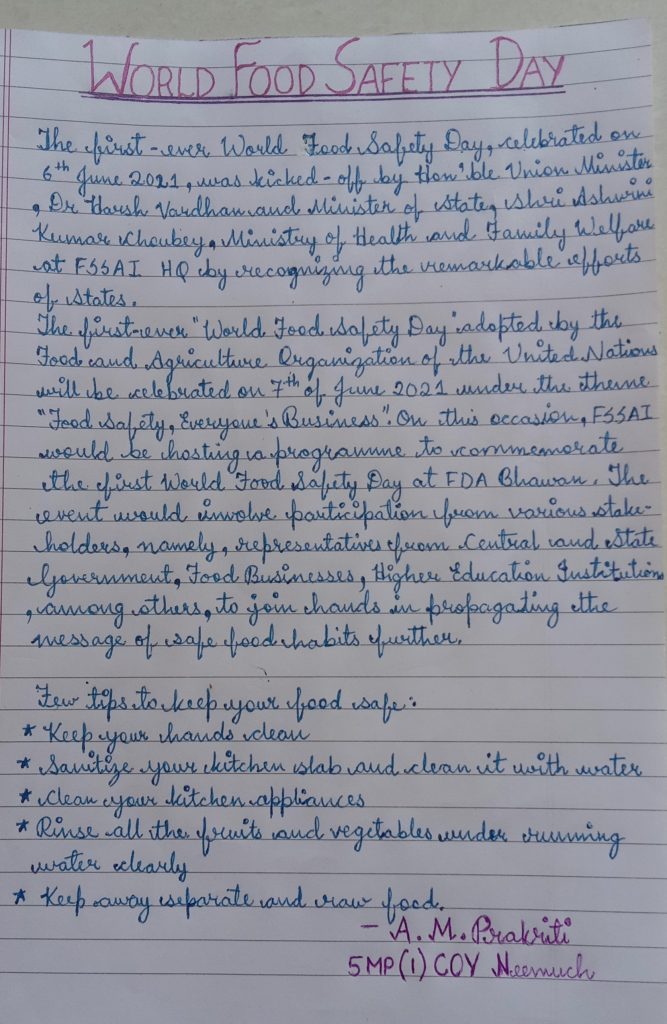 WORLD FOOD SAFETY DAY
The first-ever World Food Safety Day, celebrated on
6th June 2021, was kicked-off by Hon'ble Union Minister
, Dr Harsh Vardhan and Minister of State, Shri Ashwini
Kumar Choubey, Ministry of Health and Family Welfare
at FSSAI HQ by recognizing the remarkable efforts
of States.
The first-ever "World Food Safety Day" adopted by the
Food and Agriculture Organization of the United Nations
will be celebrated on 7th of June 2021 under the theme
"Food safety, Everyone's Business". On this occasion, FSSAI
would be hosting a programme to commemorate
the first World Food Safety Day at FDA Bhawan. The
event would involve participation from various stake-
holders, namely, representatives from Central and State
Government, Food Businesses, Higher Education Institution
, among others, to join hands in propagating the
message of safe food habits further.
Few tips to keep your food safe:
* Keep your hands clean
* Sanitize your kitchen slab and clean it with water
* Clean your kitchen appliances
* Rinse all the fruits and vegetables under running
water clearly
* Keep away separate and raw food.
- A. M. Prakriti
5MP(1) COY Neemuch